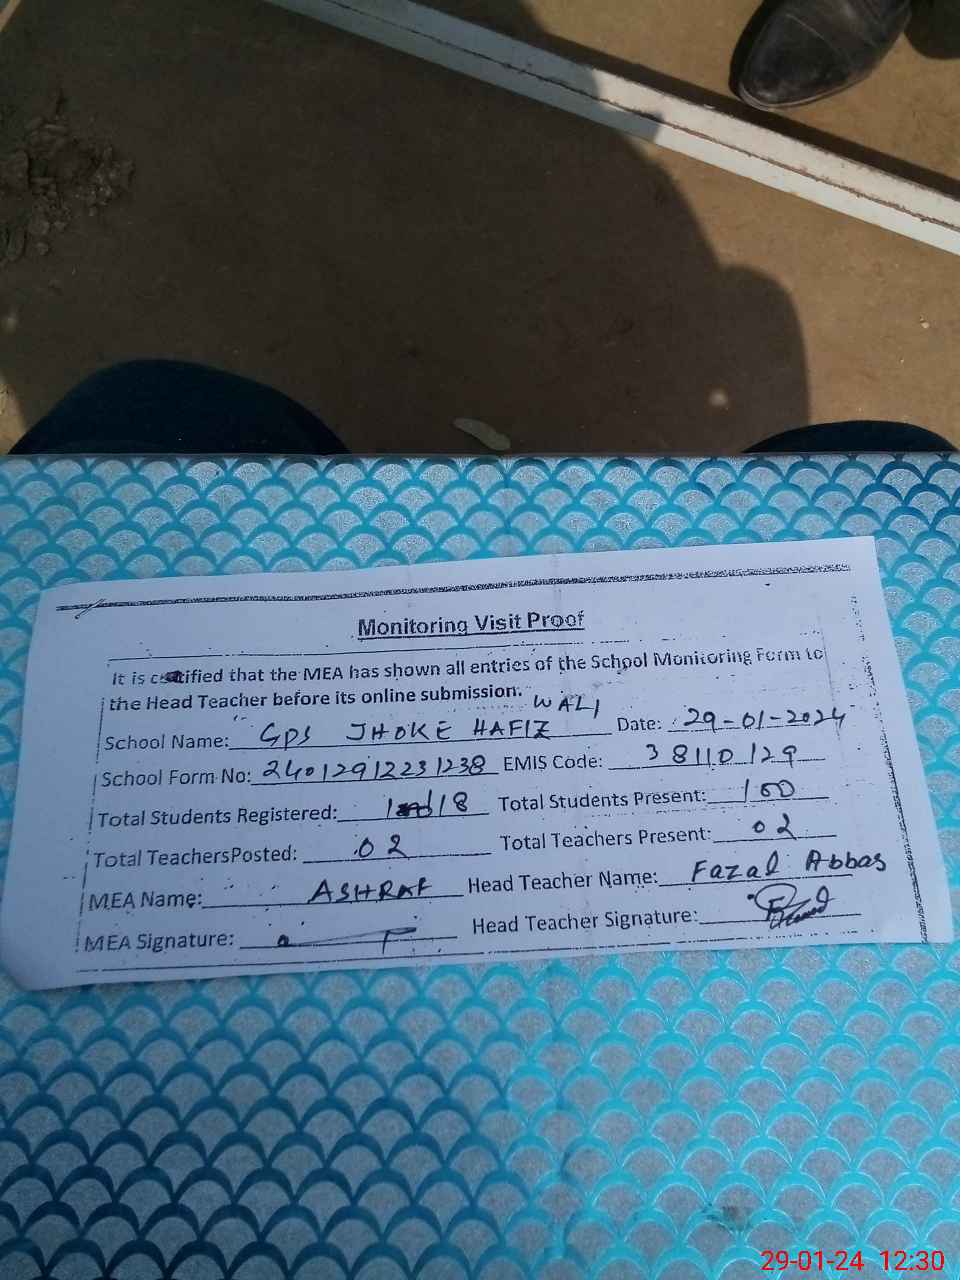 Monitoring Visit Proof
It is certified that the MEA has shown all entries of the School Monitoring Form to
the Head Teacher before its online submission.
School Name: GPS JHOKE HAFIZ WALI Date: 29-01-2024
School Form No: 24012912231238 EMIS Code: 38110129
Total Students Registered: 118 Total Students Present: 100
Total TeachersPosted: 02 Total Teachers Present: 02
MEA Name: ASHRAF Head Teacher Name: Fazal Abbas
MEA Signature: Head Teacher Signature:
29-01-24 12:30